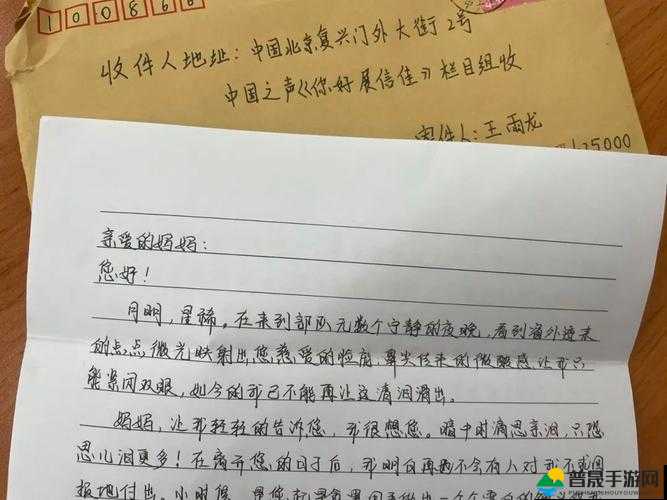 100866
收件人地址：中国北京复兴门外大街2号
中国之声《你好展信佳》栏目组收
寄件人：王雨龙
125000
亲爱的妈妈：
您好！
月明，星稀。在来到部队无数个宁静的夜晚，看到窗外透来
的点点微光映射出您慈爱的脸庞，鼻尖传来的微酸感让我只
能紧闭双眼，如今的我已不能再让这清泪滑出。
妈妈，让我轻轻的告诉您，我很想您。暗中时滴思亲泪，只恐
思儿泪更多！在离开您的日子后，我明白再
普晟手游网